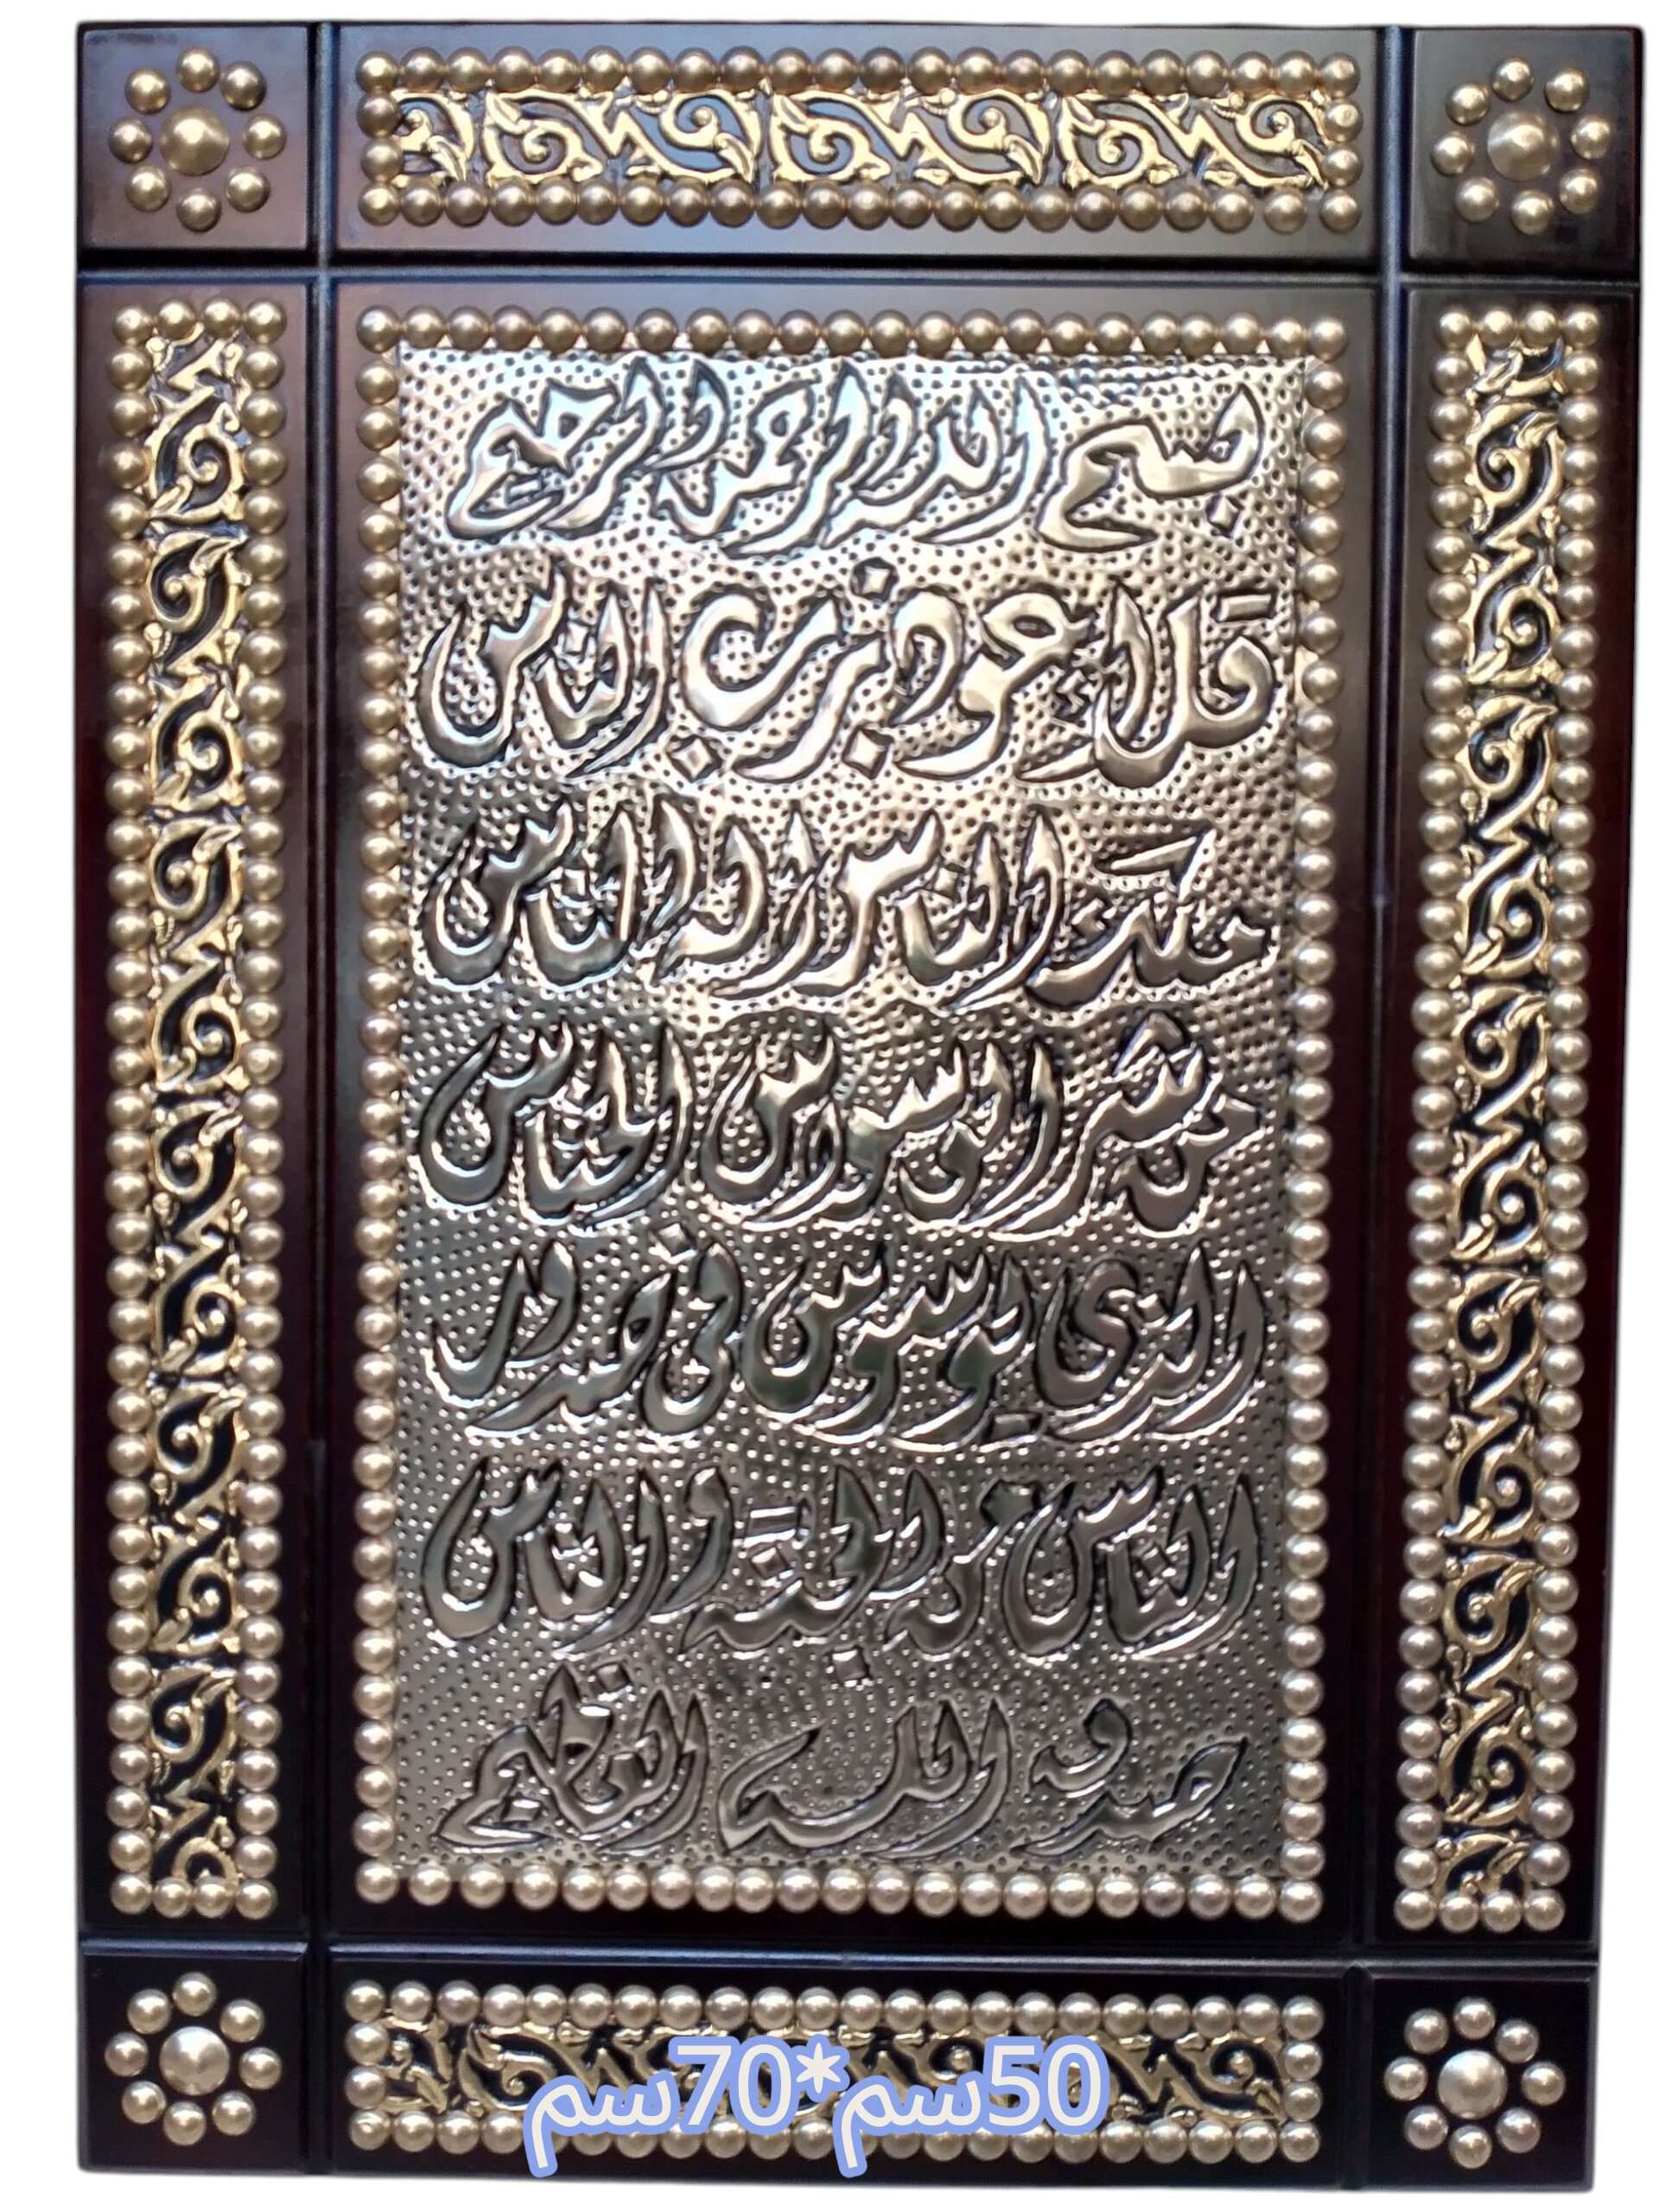 بسم الله الرحمن الرحيم
قل اعوذ برب الناس
ملك الناس اله الناس
من شر الوسواس الخناس
الذي يوسوس في صدور
الناس من الجنة والناس
صدق الله العظيم
50سم*70سم